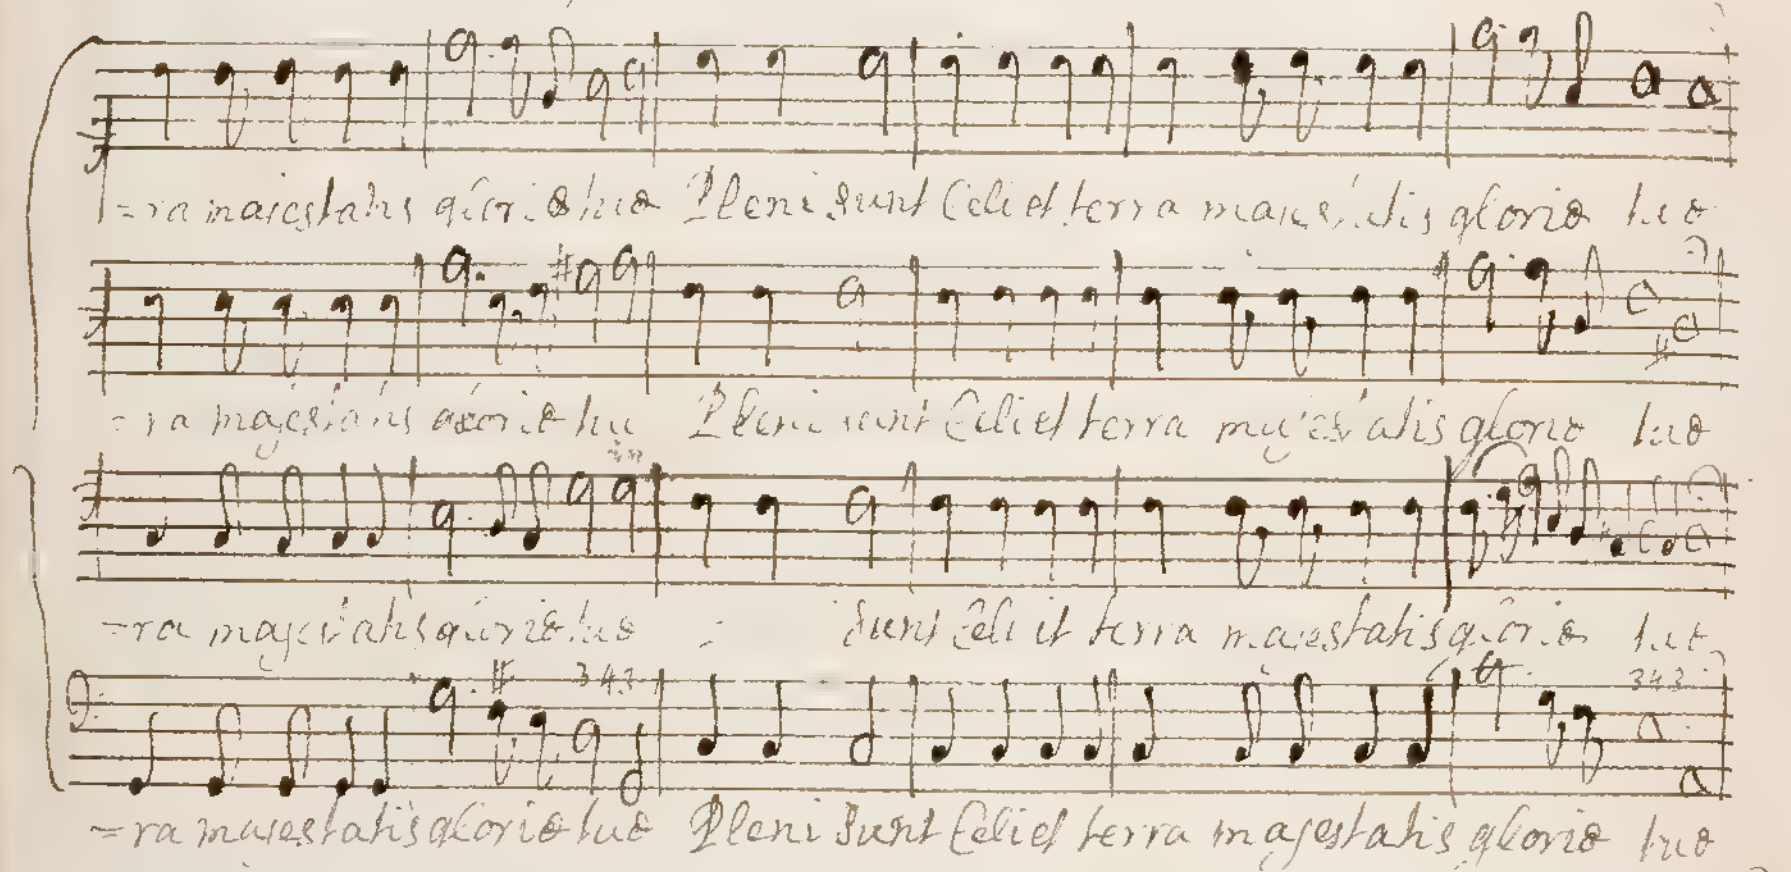 =ra maiestatis glorie tue Pleni sunt Celi et terra maiestatis glorie tue
=ra majestatis glorie tu Pleni sunt Celi et terra majestatis glorie tue
=ra majestatis glorie tue sunt Celi et terra maiestatis glorie tue
3 4 3 3 4 3
=ra maiestatis glorie tue Pleni sunt Celi et terra majestatis glorie tue